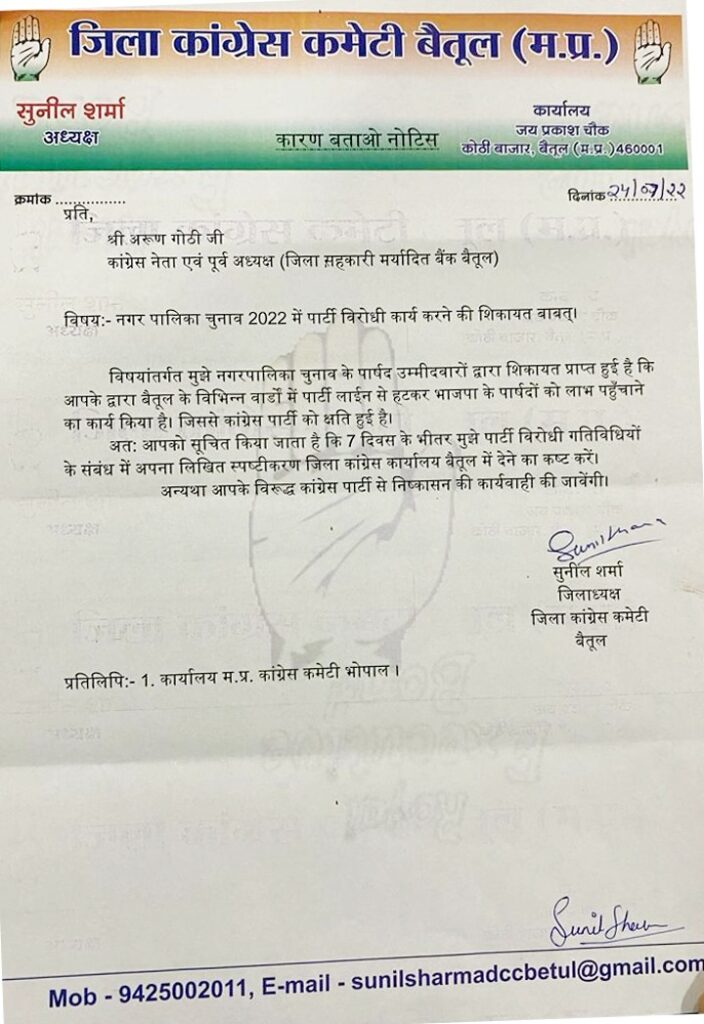 जिला कांग्रेस कमेटी बैतूल (म.प्र.)
सुनील शर्मा
अध्यक्ष
कारण बताओ नोटिस
कार्यालय
जय प्रकाश चौक
कोठी बाजार, बैतूल (म.प्र.)460001
क्रमांक ................
दिनांक 24/07/22
प्रति,
श्री अरूण गोठी जी
कांग्रेस नेता एवं पूर्व अध्यक्ष (जिला सहकारी मर्यादित बैंक बैतूल)
विषय:- नगर पालिका चुनाव 2022 में पार्टी विरोधी कार्य करने की शिकायत बाबत्।
विषयांतर्गत मुझे नगरपालिका चुनाव के पार्षद उम्मीदवारों द्वारा शिकायत प्राप्त हुई है कि
आपके द्वारा बैतूल के विभिन्न वार्डो में पार्टी लाईन से हटकर भाजपा के पार्षदों को लाभ पहुँचाने
का कार्य किया है। जिससे कांग्रेस पार्टी को क्षति हुई है।
अत: आपको सूचित किया जाता है कि 7 दिवस के भीतर मुझे पार्टी विरोधी गतिविधियों
के संबंध में अपना लिखित स्पष्टीकरण जिला कांग्रेस कार्यालय बैतूल में देने का कष्ट करें।
अन्यथा आपके विरूद्ध कांग्रेस पार्टी से निष्कासन की कार्यवाही की जावेंगी।
सुनील शर्मा
जिलाध्यक्ष
जिला कांग्रेस कमेटी
बैतूल
प्रतिलिपि:- 1. कार्यालय म.प्र. कांग्रेस कमेटी भोपाल।
Mob - 9425002011, E-mail - sunilsharmadccbetul@gmail.com